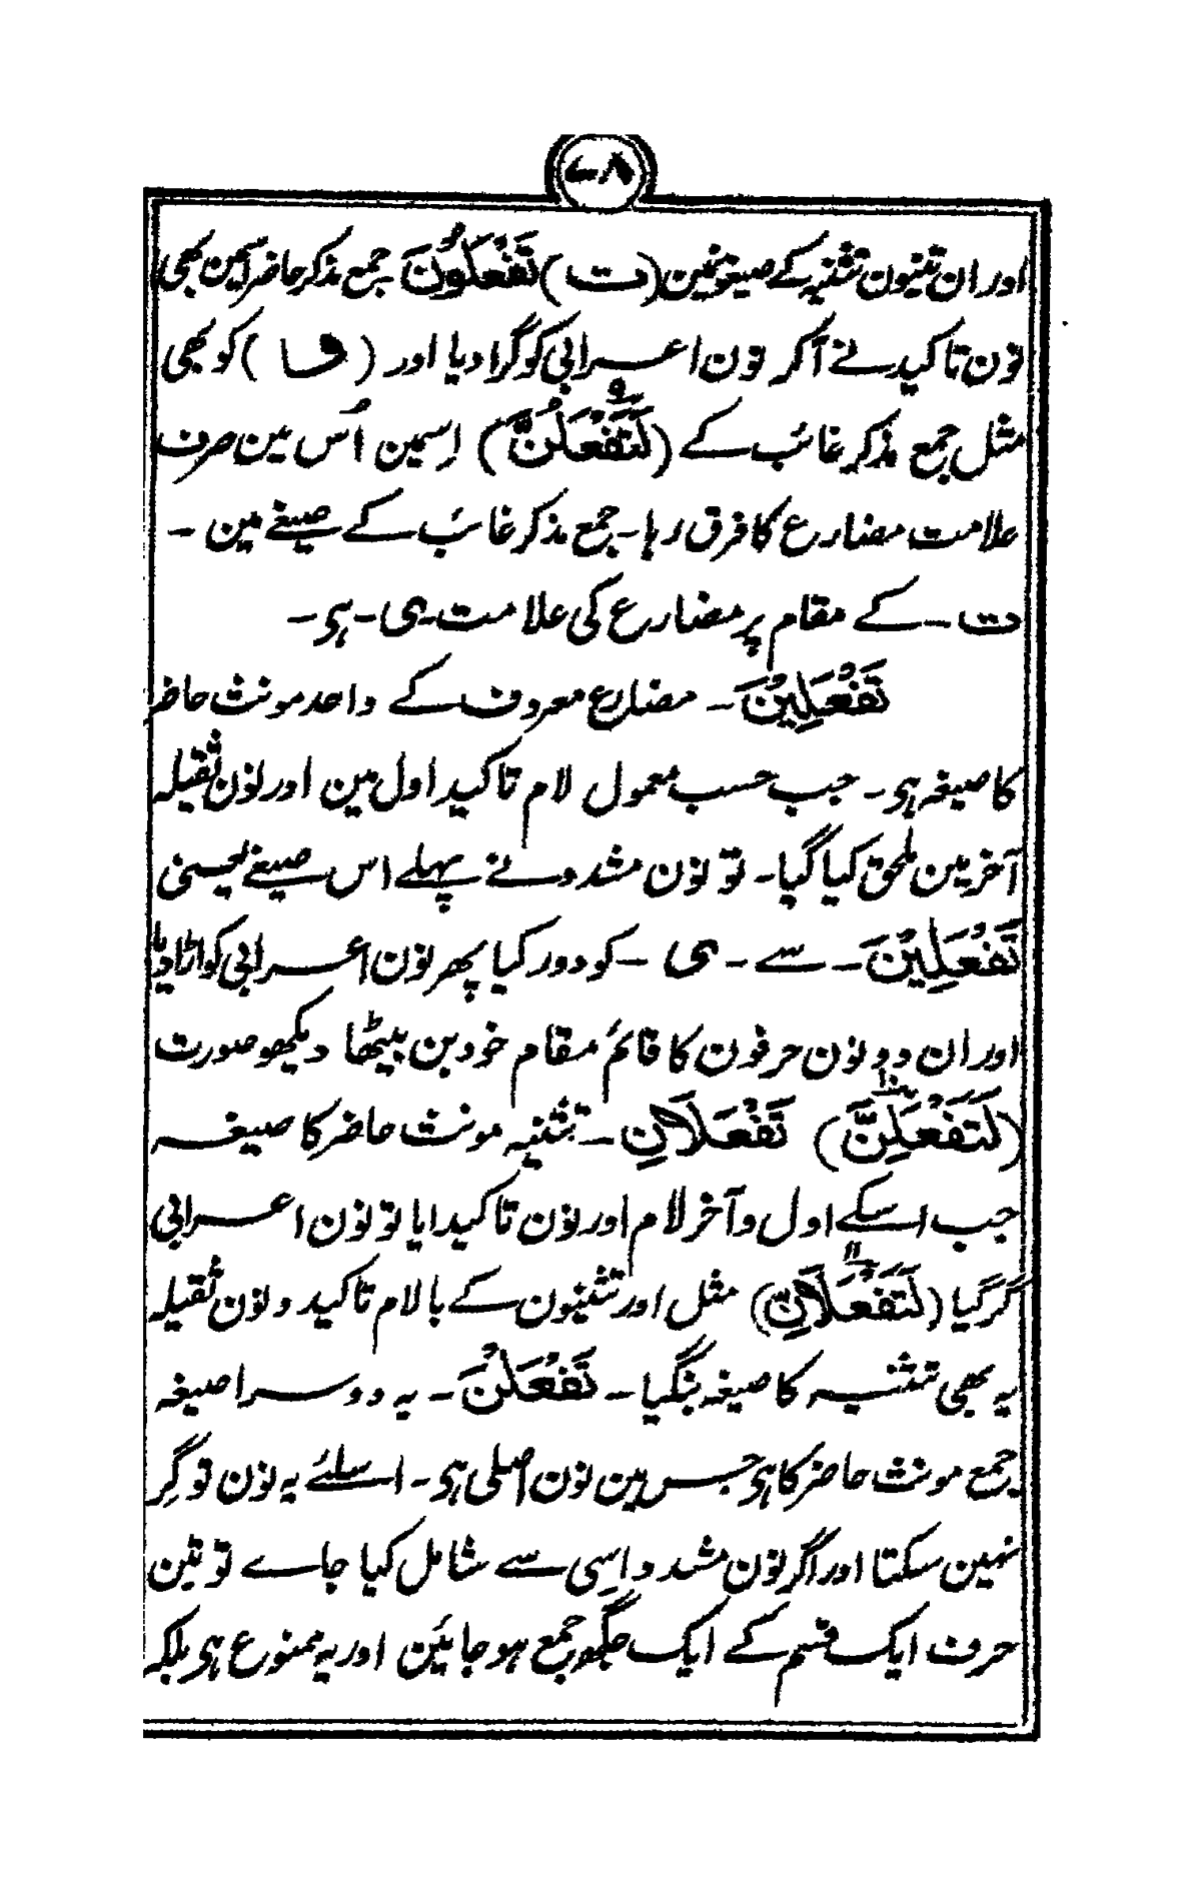 ۷۸
اور ان تینون تثنیہ کے صیغونمین (ت) تَفْعَلُوْنَ جمع مذکر حاضر اسمین بھی
نون تاکید نے آکر نون اعرابی کو گرا دیا اور (و) کو بھی
مثل جمع مذکر غائب کے (لَتَفْعَلُنَّ) اِسمین اُس مین صرف
علامت مضارع کا فرق رہا۔ جمع مذکر غائب کے صیغے مین ۔
ت ۔ کے مقام پر مضارع کی علامت ۔ ی ۔ ہی ۔
تَفْعَلِیْنَ ۔ مضارع معروف کے واحد مونث حاضر
کا صیغہ ہی ۔ جب حسب معمول لام تاکید اول مین اور نون ثقیلہ
آخر مین ملحق کیا گیا ۔ تو نون مشدد نے پہلے اس صیغے یعنی
تَفْعَلِیْنَ ۔ سے ۔ ی ۔ کو دور کیا پھر نون اعرابی کو اڑا دیا
اور ان دونون حرفون کا قائم مقام خود بن بیٹھا دیکھو صورت
(لَتَفْعَلِنَّ) تَفْعَلَانِ ۔ تثنیہ مونث حاضر کا صیغہ
جب اسکے اول و آخر لام اور نون تاکید ایا تو نون اعرابی
گر گیا (لَتَفْعَلَانِّ) مثل اور تثنیون کے بالام تاکید و نون ثقیلہ
یہ بھی تثنیہ کا صیغہ بنگیا ۔ تَفْعَلْنَ ۔ یہ دوسرا صیغہ
جمع مونث حاضر کا ہی جس مین نون اصلی ہی ۔ اسلئے یہ نون تو گِر
نہین سکتا اور اگر نون مشدد اِسی سے شامل کیا جاے تو تین
حرف ایک قسم کے ایک جگہ جمع ہو جائین اور یہ ممنوع ہی بلکہ